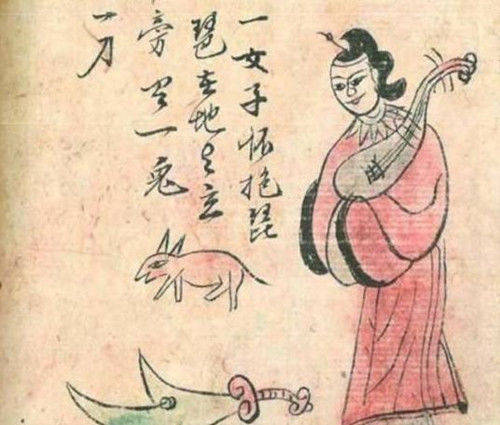 一女子怀抱琵
琶在地上立
旁一兔
一刀